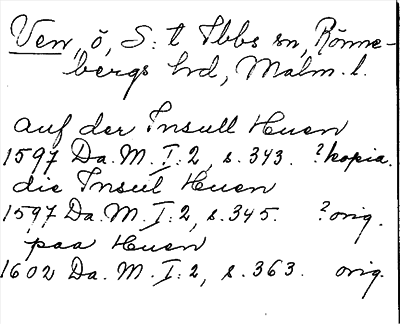 Ven, ö, S:t Ibbs sn, Rönne-
bergs hd, Malm. l.
auf der Insull Huen
1597 Da. M. I:2, s. 343. ? kopia.
die Insul Huen
1597 Da. M. I:2, s. 345. ? orig.
paa Huen
1602 Da. M. I:2, s. 363. orig.